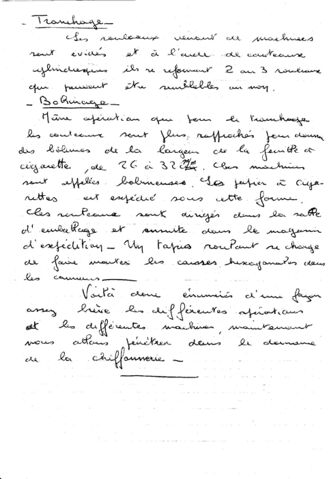 - Tranchage -
Les rouleaux venant de machines
sont évidés et à l'aide de couteaux
cylindriques ils se reforment 2 ou 3 rouleaux
qui peuvent être semblables ou non.
- Bobinage -
Même opération que pour le tranchage
les couteaux sont plus rapprochés pour donner
des bobines de la largeur de la feuille à
cigarette, de 26 à 32 Ces machines
sont appelées bobineuses. Les papier à ciga-
rettes est expédié sous cette forme.
Ces rouleaux sont dirigés dans la salle
d'emballage et ensuite dans le magasin
d'expédition - Un tapis roulant se charge
de faire monter les caisses hexagonales dans
les camions -
Voilà donc énumérés d'une façon
assez brève les différentes opérations
et les différentes machines, maintenant
nous allons pénétrer dans le domaine
de la chiffonnerie -